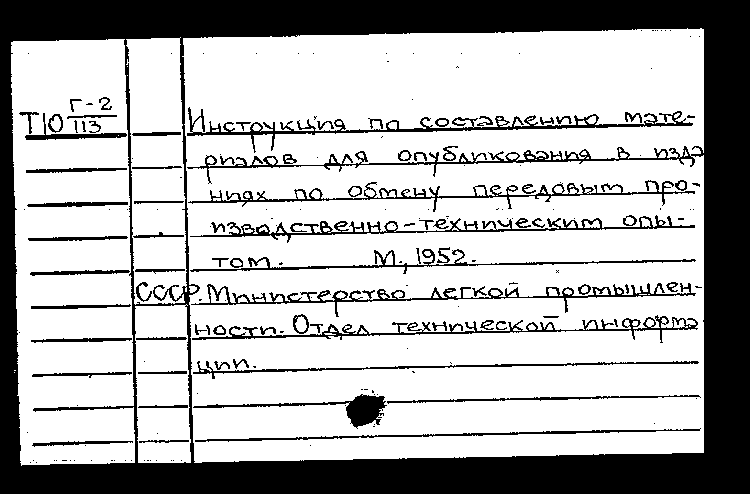 Г-2
Т10 113 Инструкция по составлению мате-
риалов для опубликования в изда
ниях по обмену передовым про-
изводственно-техническим опы-
том. М., 1952.
СССР. Министерство легкой промышлен-
ности. Отдел технической информа
ции.